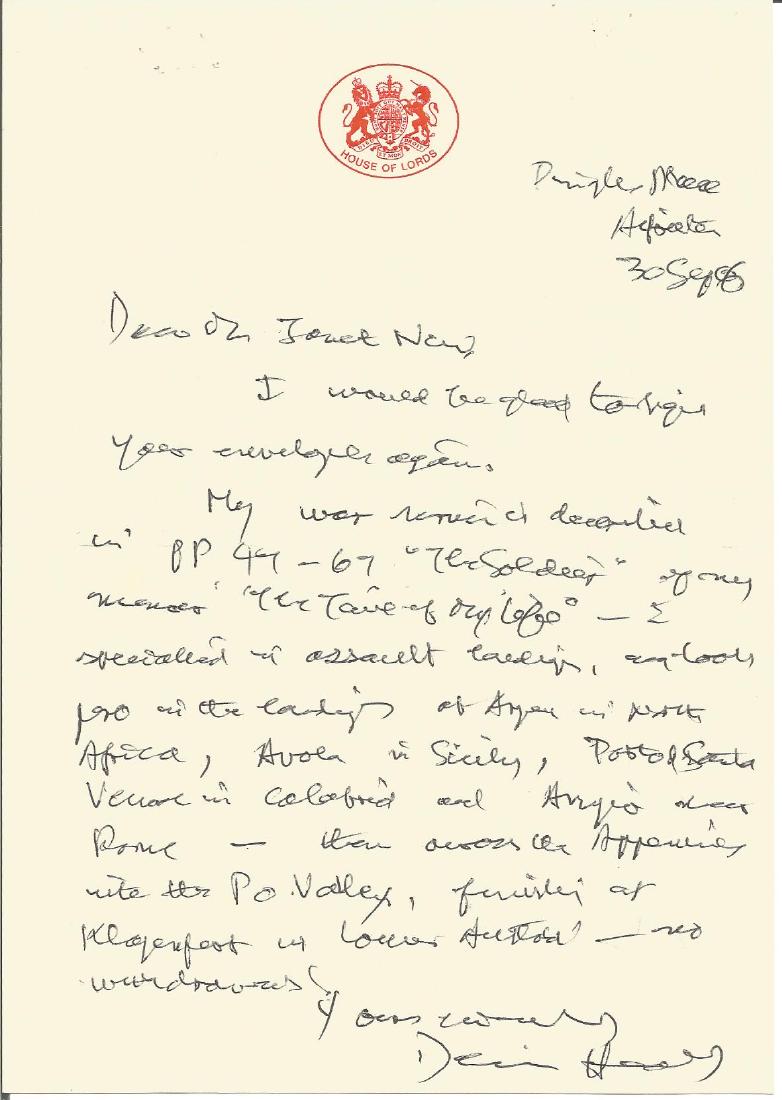 HOUSE OF LORDS
Pingles Place
Alfriston
30 Sept 6
Dear
I would be glad to sign
your envelopes again.
My war service is described
in PP 47 – 67 "The Soldier" of my
memoir "The Time of My Life" – I
specialised in assault landings, and took
in the landings at in North
Africa, Avola in Sicily, Porto Santa
Venere in Calabria and Anzio near
Rome — then across the Appenines
into the Po Valley, finishing at
Klagenfurt in Lower Austria — no
Yours sincerely
Denis Healey